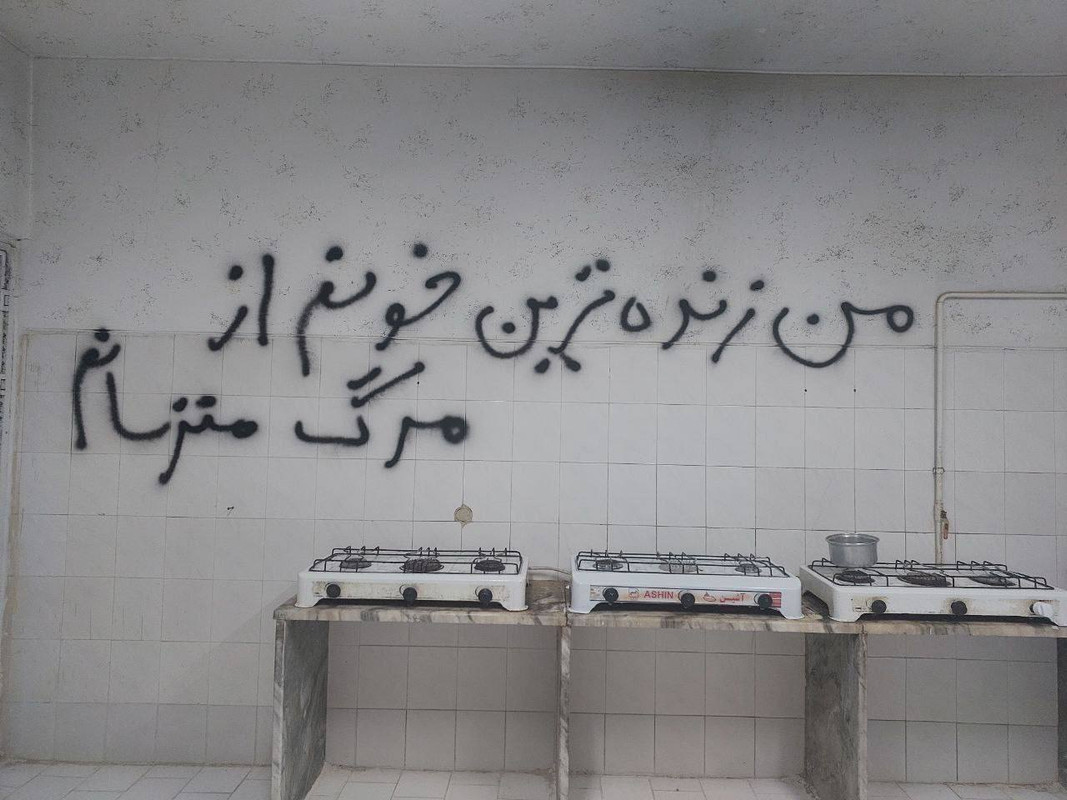 من زنده ترین خونم از
مرگ متزسانم
ASHIN آشین